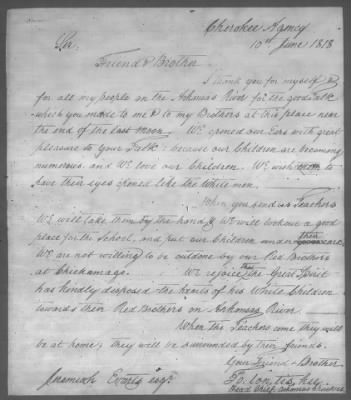 Cherokee Agency
10th June 1818
Sir,
Friend & Brother
I thank you for myself &
for all my people on the Arkansas River for the good Talk
which you made to me & to my Brothers at this place near
the end of the last moon. We opened our Ears with great
pleasure to your Talk: because our Children are becoming
numerous and We love our Children. We wish them to
have their eyes opened like the White men.
When you send us Teachers
We will take them by the hand & We will look out a good
place for the School, and put our Children under their care
We are not willing to be outdone by our Red Brothers
at Chickamaga. We rejoice that the Great Spirit
has kindly disposed the hearts of his White Children
towards their Red Brothers on Arkansas River.
When the Teachers come they will
be at home; they will be surrounded by their friends.
Your Friend & Brother
Jeremiah Evarts esqr.
Head Chief Arkansas Cherokees